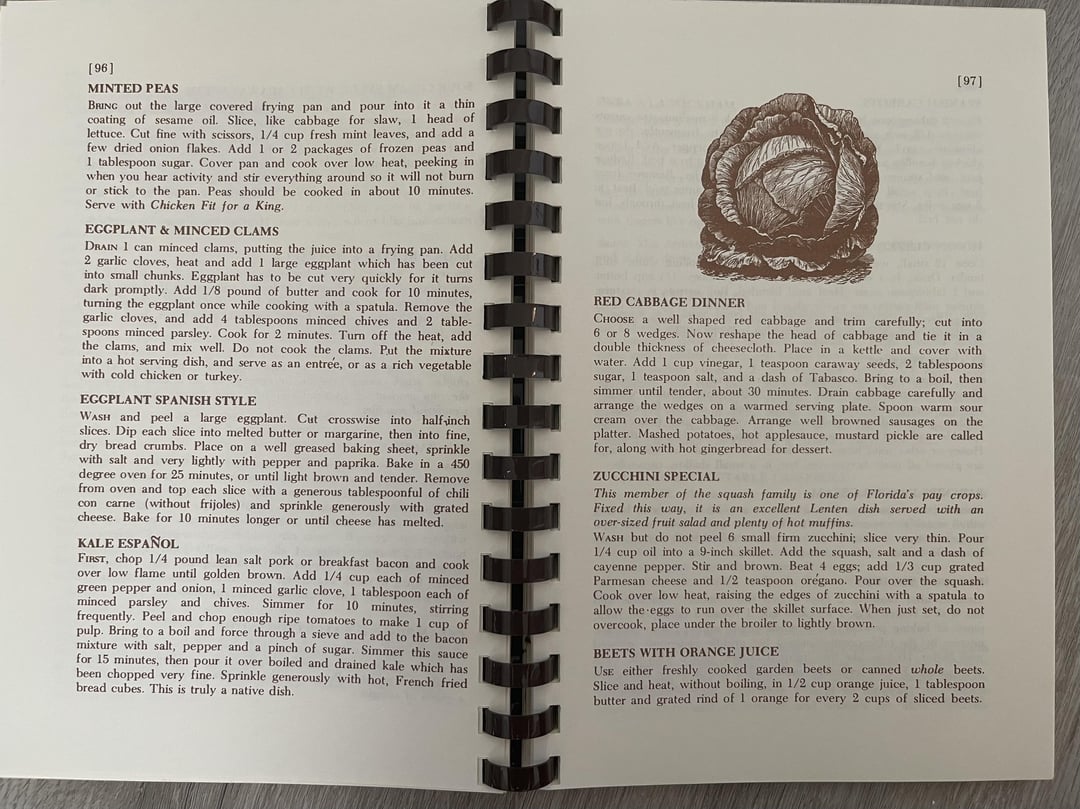 [96]
MINTED PEAS
BRING out the large covered frying pan and pour into it a thin
coating of sesame oil. Slice, like cabbage for slaw, 1 head of
lettuce. Cut fine with scissors, 1/4 cup fresh mint leaves, and add a
few dried onion flakes. Add 1 or 2 packages of frozen peas and
1 tablespoon sugar. Cover pan and cook over low heat, peeking in
when you hear activity and stir everything around so it will not burn
or stick to the pan. Peas should be cooked in about 10 minutes.
Serve with Chicken Fit for a King.
EGGPLANT & MINCED CLAMS
DRAIN 1 can minced clams, putting the juice into a frying pan. Add
2 garlic cloves, heat and add 1 large eggplant which has been cut
into small chunks. Eggplant has to be cut very quickly for it turns
dark promptly. Add 1/8 pound of butter and cook for 10 minutes,
turning the eggplant once while cooking with a spatula. Remove the
garlic cloves, and add 4 tablespoons minced chives and 2 table-
spoons minced parsley. Cook for 2 minutes. Turn off the heat, add
the clams, and mix well. Do not cook the clams. Put the mixture
into a hot serving dish, and serve as an entrée, or as a rich vegetable
with cold chicken or turkey.
EGGPLANT SPANISH STYLE
WASH and peel a large eggplant. Cut crosswise into half-inch
slices. Dip each slice into melted butter or margarine, then into fine,
dry bread crumbs. Place on a well greased baking sheet, sprinkle
with salt and very lightly with pepper and paprika. Bake in a 450
degree oven for 25 minutes, or until light brown and tender. Remove
from oven and top each slice with a generous tablespoonful of chili
con carne (without frijoles) and sprinkle generously with grated
cheese. Bake for 10 minutes longer or until cheese has melted.
KALE ESPAÑOL
FIRST, chop 1/4 pound lean salt pork or breakfast bacon and cook
over low flame until golden brown. Add 1/4 cup each of minced
green pepper and onion, 1 minced garlic clove, 1 tablespoon each of
minced parsley and chives. Simmer for 10 minutes, stirring
frequently. Peel and chop enough ripe tomatoes to make 1 cup of
pulp. Bring to a boil and force through a sieve and add to the bacon
mixture with salt, pepper and a pinch of sugar. Simmer this sauce
for 15 minutes, then pour it over boiled and drained kale which has
been chopped very fine. Sprinkle generously with hot, French fried
bread cubes. This is truly a native dish.
[97]
RED CABBAGE DINNER
CHOOSE a well shaped red cabbage and trim carefully; cut into
6 or 8 wedges. Now reshape the head of cabbage and tie it in a
double thickness of cheesecloth. Place in a kettle and cover with
water. Add 1 cup vinegar, 1 teaspoon caraway seeds, 2 tablespoons
sugar, 1 teaspoon salt, and a dash of Tabasco. Bring to a boil, then
simmer until tender, about 30 minutes. Drain cabbage carefully and
arrange the wedges on a warmed serving plate. Spoon warm sour
cream over the cabbage. Arrange well browned sausages on the
platter. Mashed potatoes, hot applesauce, mustard pickle are called
for, along with hot gingerbread for dessert.
ZUCCHINI SPECIAL
This member of the squash family is one of Florida's pay crops.
Fixed this way, it is an excellent Lenten dish served with an
over-sized fruit salad and plenty of hot muffins.
WASH but do not peel 6 small firm zucchini; slice very thin. Pour
1/4 cup oil into a 9-inch skillet. Add the squash, salt and a dash of
cayenne pepper. Stir and brown. Beat 4 eggs; add 1/3 cup grated
Parmesan cheese and 1/2 teaspoon orégano. Pour over the squash.
Cook over low heat, raising the edges of zucchini with a spatula to
allow the eggs to run over the skillet surface. When just set, do not
overcook, place under the broiler to lightly brown.
BEETS WITH ORANGE JUICE
USE either freshly cooked garden beets or canned whole beets.
Slice and heat, without boiling, in 1/2 cup orange juice, 1 tablespoon
butter and grated rind of 1 orange for every 2 cups of sliced beets.